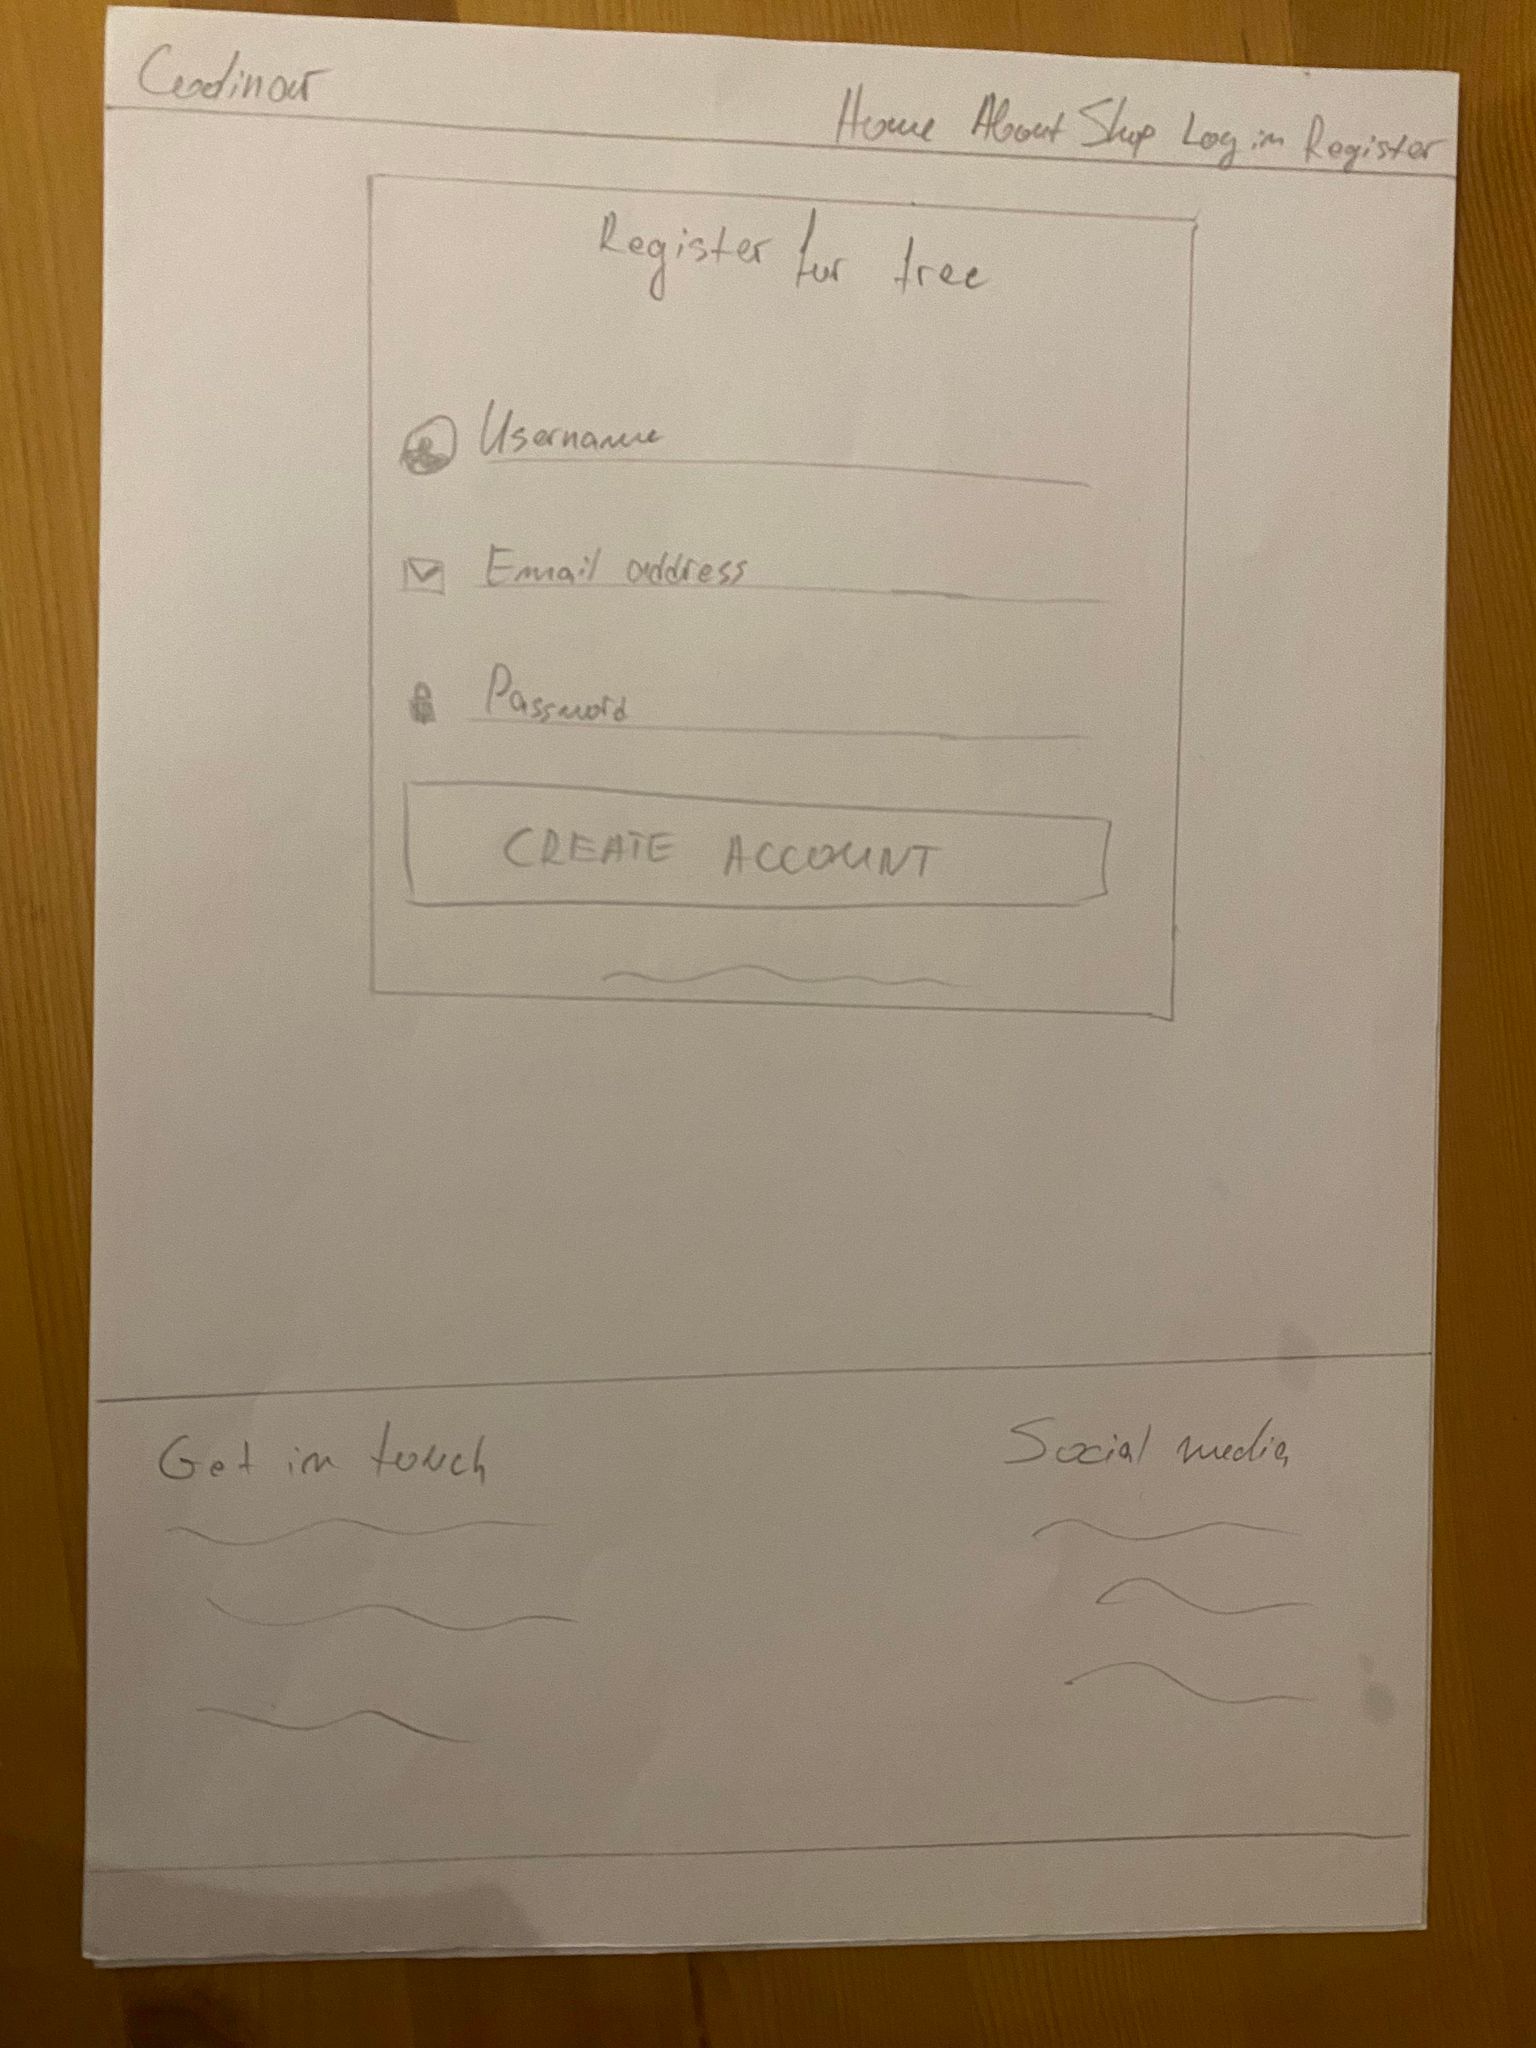 Home About Shop Log in Register
Register for free
Username
Email address
Password
CREATE ACCOUNT
Get in touch
Social media